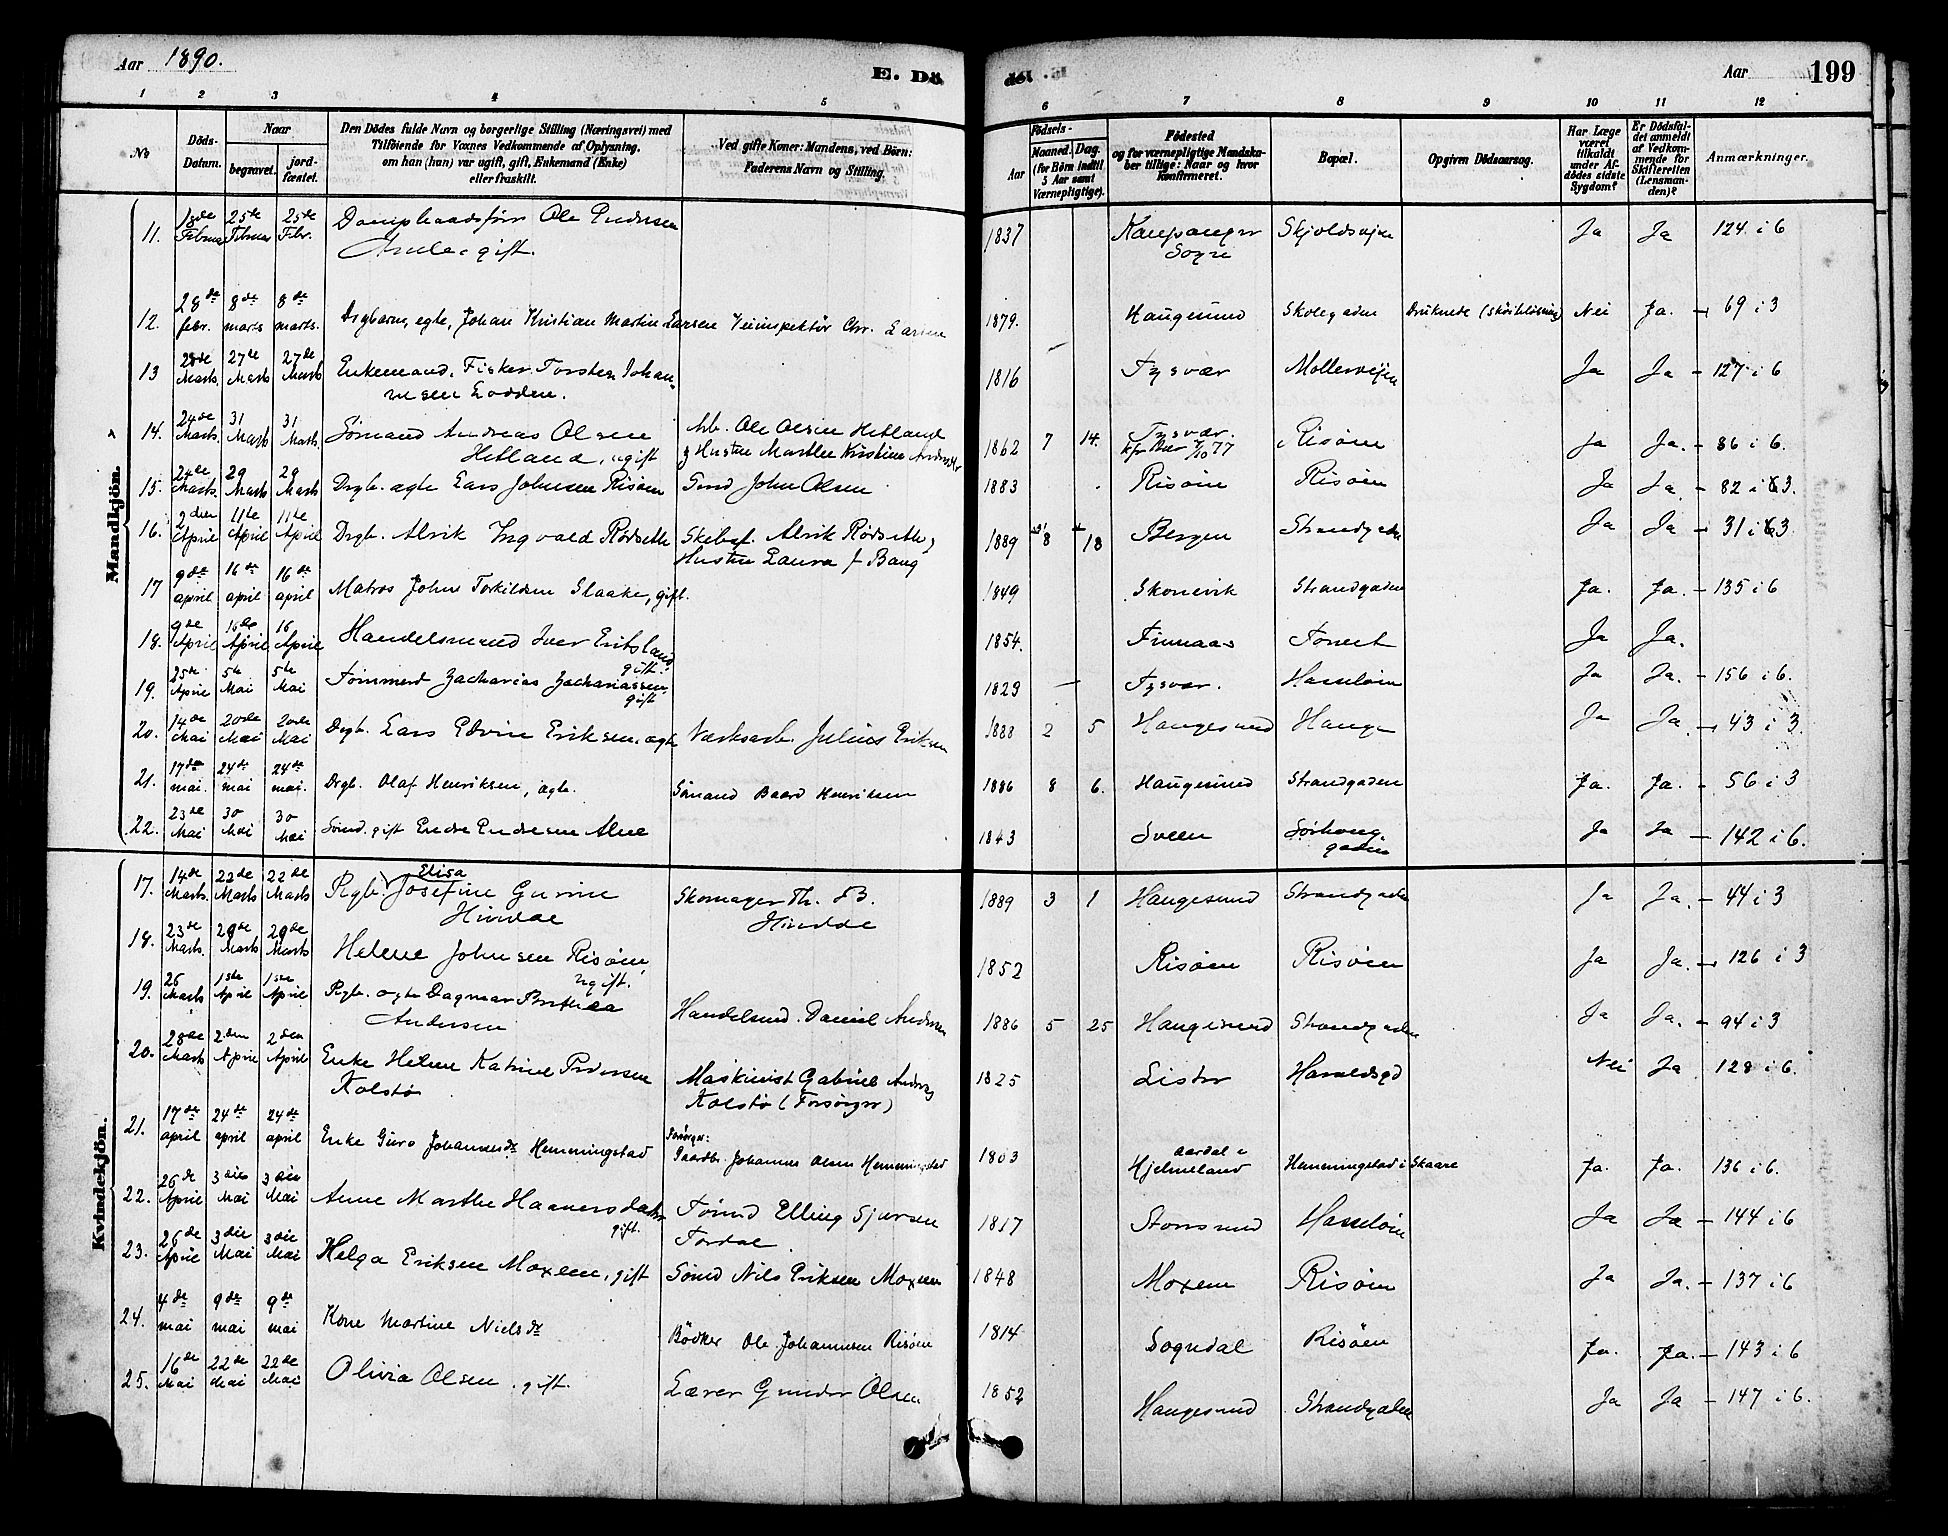 Aar 1890.
E. Dö
döt.
Aar
199
1 2 3 4 5 6 7 8 9 10 11 12
No
Döds-Datum.
Naar
begravet.
jord-fæstet.
Den Dödes fulde Navn og borgerlige Stilling (Næringsvei) med
Tilföiende for Voxnes Vedkommende af Oplysning,
om han (hun) var ugift, gift, Enkemand (Enke)
eller fraskilt.
Ved gifte Koner: Mandens, ved Börn:
Faderens Navn og Stilling.
Födsels-
Aar
Maaned.
Dag.
(for Börn indtil
5 Aar samt
Værnepligtige).
Födested
og for værnepligtige Mandska-
ber tillige: Naar og hvor
konfirmeret.
Bopæl.
Opgiven Dödsaarsag.
Har Læge
været
tilkaldt
under Af-
dödes sidste
Sygdom?
Er Dödsfal-
det anmeldt
af Vedkom-
mende for
Skifteretten
(Lensman-
den)?
Anmærkninger.
Mandkjön.
11. 18de Februar 25de Februar 25de Febr. Ole Andersen 1837 Kaupanger Skjoldavejen Ja Ja 124 i 6
gift. Sogn
12. 28de febr. 8de marts 8de marts. Drgbarn, egte, Johan Kristian Martin Larsen Veiinspektör Chr. Larsen 1879. Haugesund Skolegaden Druknede Nei Ja. 69 i 3
13 27de Marts 27de Marts Enkemand, Fisker Torsten Johan- 1816 Tysvær Møllervejen Ja Ja - 127 i 6
nesen Lodden.
14. 24de Marts 31 Marts 31 Marts. Sømand Andreas Olsen Arb. Ole Olsen Hetland 1862 7 14. Tysvær. Risøen Ja Ja. - 86 i 6.
Hetland, ugift Hustru Marthe Kristine
15. 24de Marts. 29 Marts 29 Marts Drgb. egte Lars Johnsen Risøen John Olsen 1883 Risøen Risøen Ja Ja. - 82 i 3.
16. 2den April 11te April 11te April Drgb. Alrik Ingvald Rødseth Skibsf. Alrik Rødseth 1889 8 18 Bergen Strandgaden Ja Ja - 31 i 3.
Hustru Laura f Bang
17 9de april 16de april 16de april Matros John Torkildsen Slaake, gift. 1849 Skonevik Strandgaden Ja. Ja. - 135 i 6
18. 9de April 16de April 16 April Handelsmand Iver Eritsland 1854. Finnaas Torvet Ja Ja.
gift.
19. 25de April 5te Mai 5te Mai Tømmerd Zacharias Zachariassen, 1829 Tysvær. Hasseløen Ja Ja. - 156 i 6.
gift
20. 14de Mai 20de Mai 20de Mai Drgb. Lars Edvin Eriksen, egte Værksarb. Julius Eriksen 1888 2 5 Haugesund Hauge Ja Ja 43 i 3.
21. 17de mai. 24de mai 24de mai. Drgb. Olaf Henriksen, egte. Sømand Baard Henriksen 1886 8 6. Haugesund Strandgaden Ja. Ja. - 56 i 3
22. 23de Mai 30 Mai 30 Mai Sømd. gift Endre Endresen 1843 Sveen Sørhaug- Ja Ja - 142 i 6.
gaden
Kvindekjön.
17. 14de Marts 22de Marts 22de Marts Pigb. Elisa Josefine Gurine Skomager Th. B. 1889 3 1 Haugesund Strandgaden Ja Ja. - 44 i 3
Hindae Hindae
18. 23de Marts. 29de Marts 29de Marts Helene Johnsen Risøen, 1852 Risøen Risøen Ja Ja. 126 i 3
ugift.
19. 26 Marts 1ste April 1ste April Pigb. egte Dagmar Handelsmd. Daniel Andersen 1886 5 25 Haugesund Strandgaden Ja Ja. - 94 i 3
Andersen
20. 28de Marts 2den April 2den April Enke Helene Katrine Pedersen Maskinist Gabriel 1825 Lister Haraldsgd Nei Ja 128 i 6.
Kolstø Kolstø (Forsørger)
21. 17de april 24de april 24de april Enke Guro Johannesdr Hemmingstad Forsørger: 1803 Aardal i Hjelmeland Hemmingstad i Skaare Ja. Ja. 136 i 6.
Gaardbr. Johannes Olsen Hemmingstad
22. 26de April 3die Mai 3die Mai Anne Marthe Haaversdatter Tømd Elling Sjursen 1817 Storesund Hasseløen Ja Ja - 144 i 6
gift. Fordal.
23. 26de April 3die Mai 3die Mai Helga Eriksen Moxem, gift Sømd Nils Eriksen Moxem 1848 Moxem Risøen Ja Ja. - 137 i 6
24. 4de mai 9de mai 9de mai Kone Martine Nielsdr Bødker Ole Johannesen Risøen 1814 Sogndal Risøen Ja. Ja. - 143 i 6
25. 16de Mai 22de Mai 22de Mai Olivia Olsen, gift. Lærer Gunder Olsen 1852 Haugesund Strandgaden Ja Ja - 147 i 6.